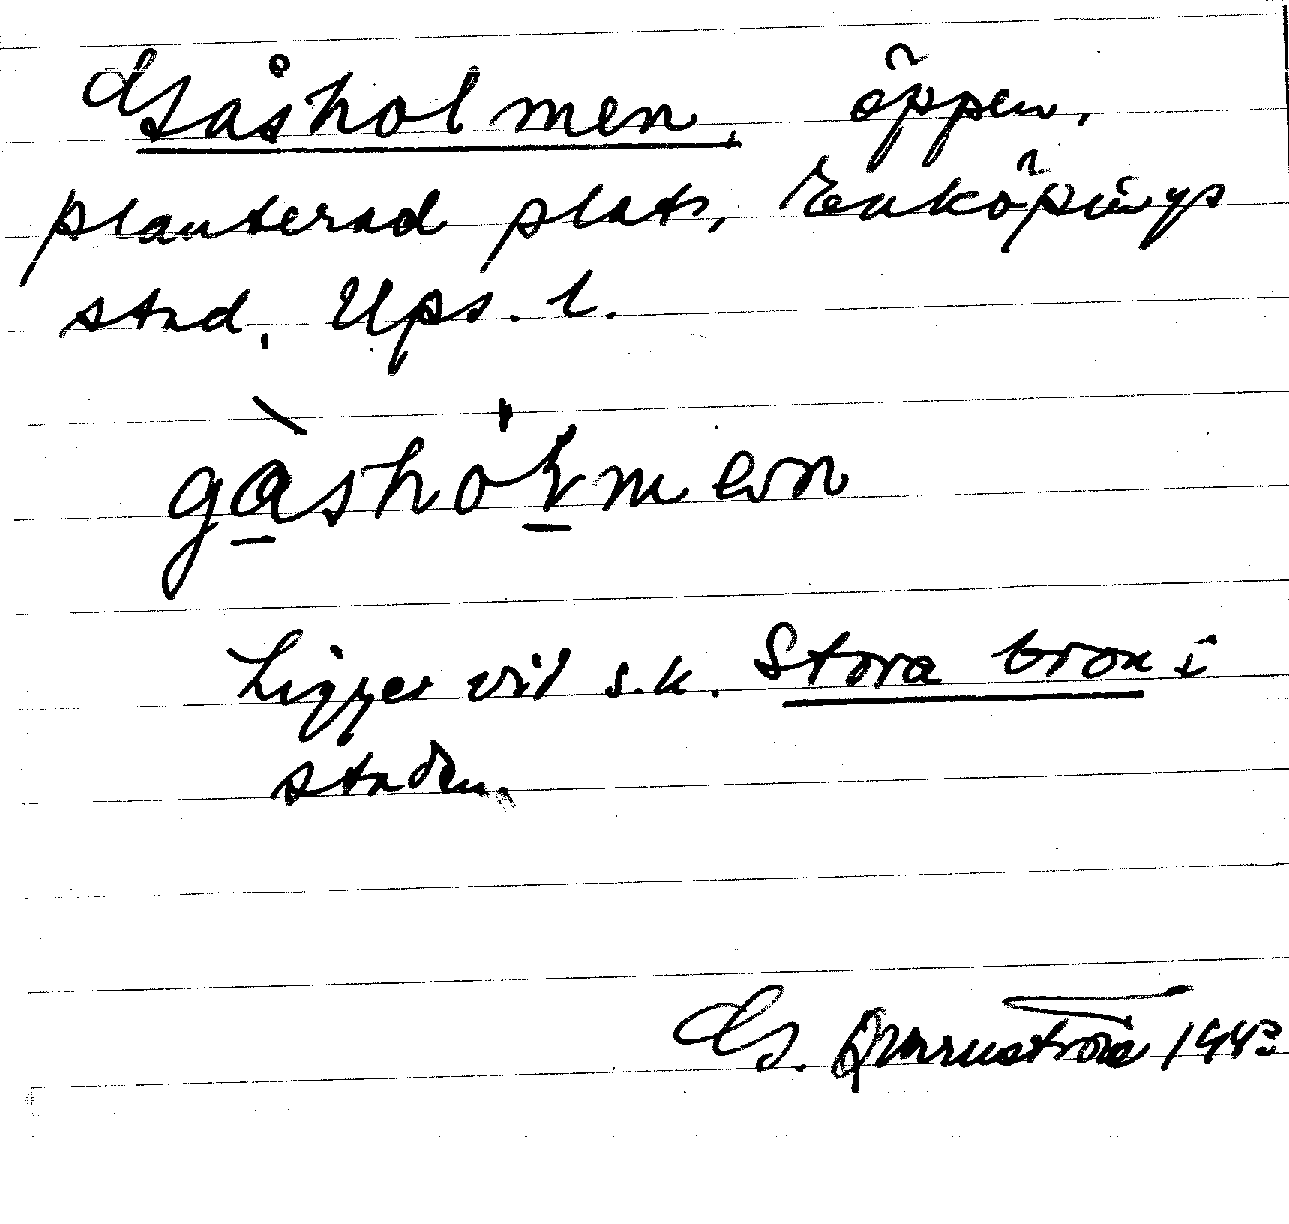 Gåsholmen, öppen,
planterad plats, Enköpings
stad. Ups. l.
gåshòlmen
Ligger vid s.k. Stora bron i
staden.
G. 1943